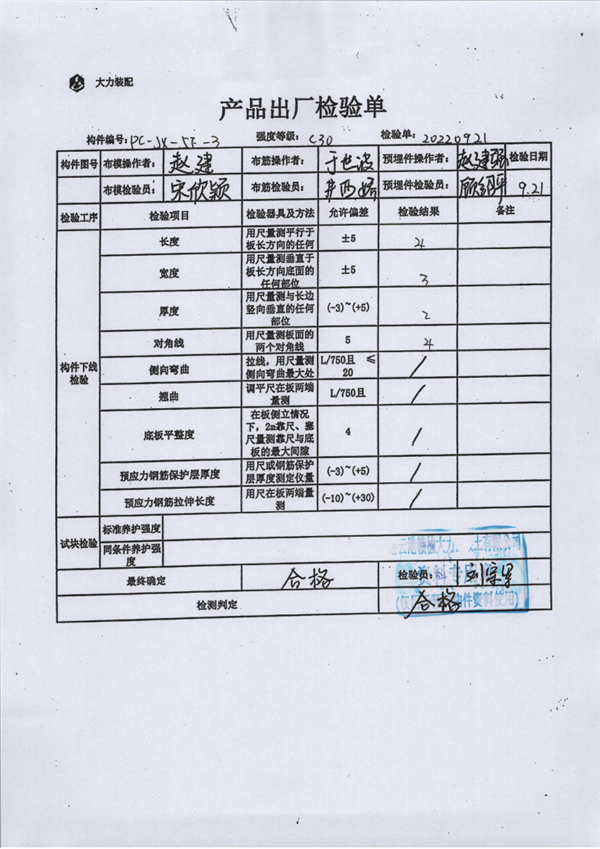 大力装配
产品出厂检验单
构件编号: PC-JX-5F-3 强度等级: C30 检验单: 20220921
构件图号 布模操作者: 赵建 布筋操作者: 于世波 预埋件操作者: 赵建强 检验日期
布模检验员: 宋欣颖 布筋检验员: 预埋件检验员: 9.21
检验工序 检验项目 检验器具及方法 允许偏差 检验结果 备注
构件下线检验
长度 用尺量测平行于板长方向的任何 ±5 4
宽度 用尺量测垂直于板长方向底面的任何部位 ±5 3
厚度 用尺量测与长边竖向垂直的任何部位 (-3)~(+5) 2
对角线 用尺量测板面的两个对角线 5 4
侧向弯曲 拉线，用尺量测侧向弯曲最大处 L/750且 ≤20 /
翘曲 调平尺在板两端量测 L/750且 /
底板平整度 在板侧立情况下，2m靠尺、塞尺量测靠尺与底板的最大间隙 4 /
预应力钢筋保护层厚度 用尺或钢筋保护层厚度测定仪量 (-3)~(+5) /
预应力钢筋拉伸长度 用尺在板两端量测 (-10)~(+30) /
试块检验 标准养护强度
同条件养护强度
最终确定 合格 检验员:
检测判定 合格
资料专用
件资料使用)